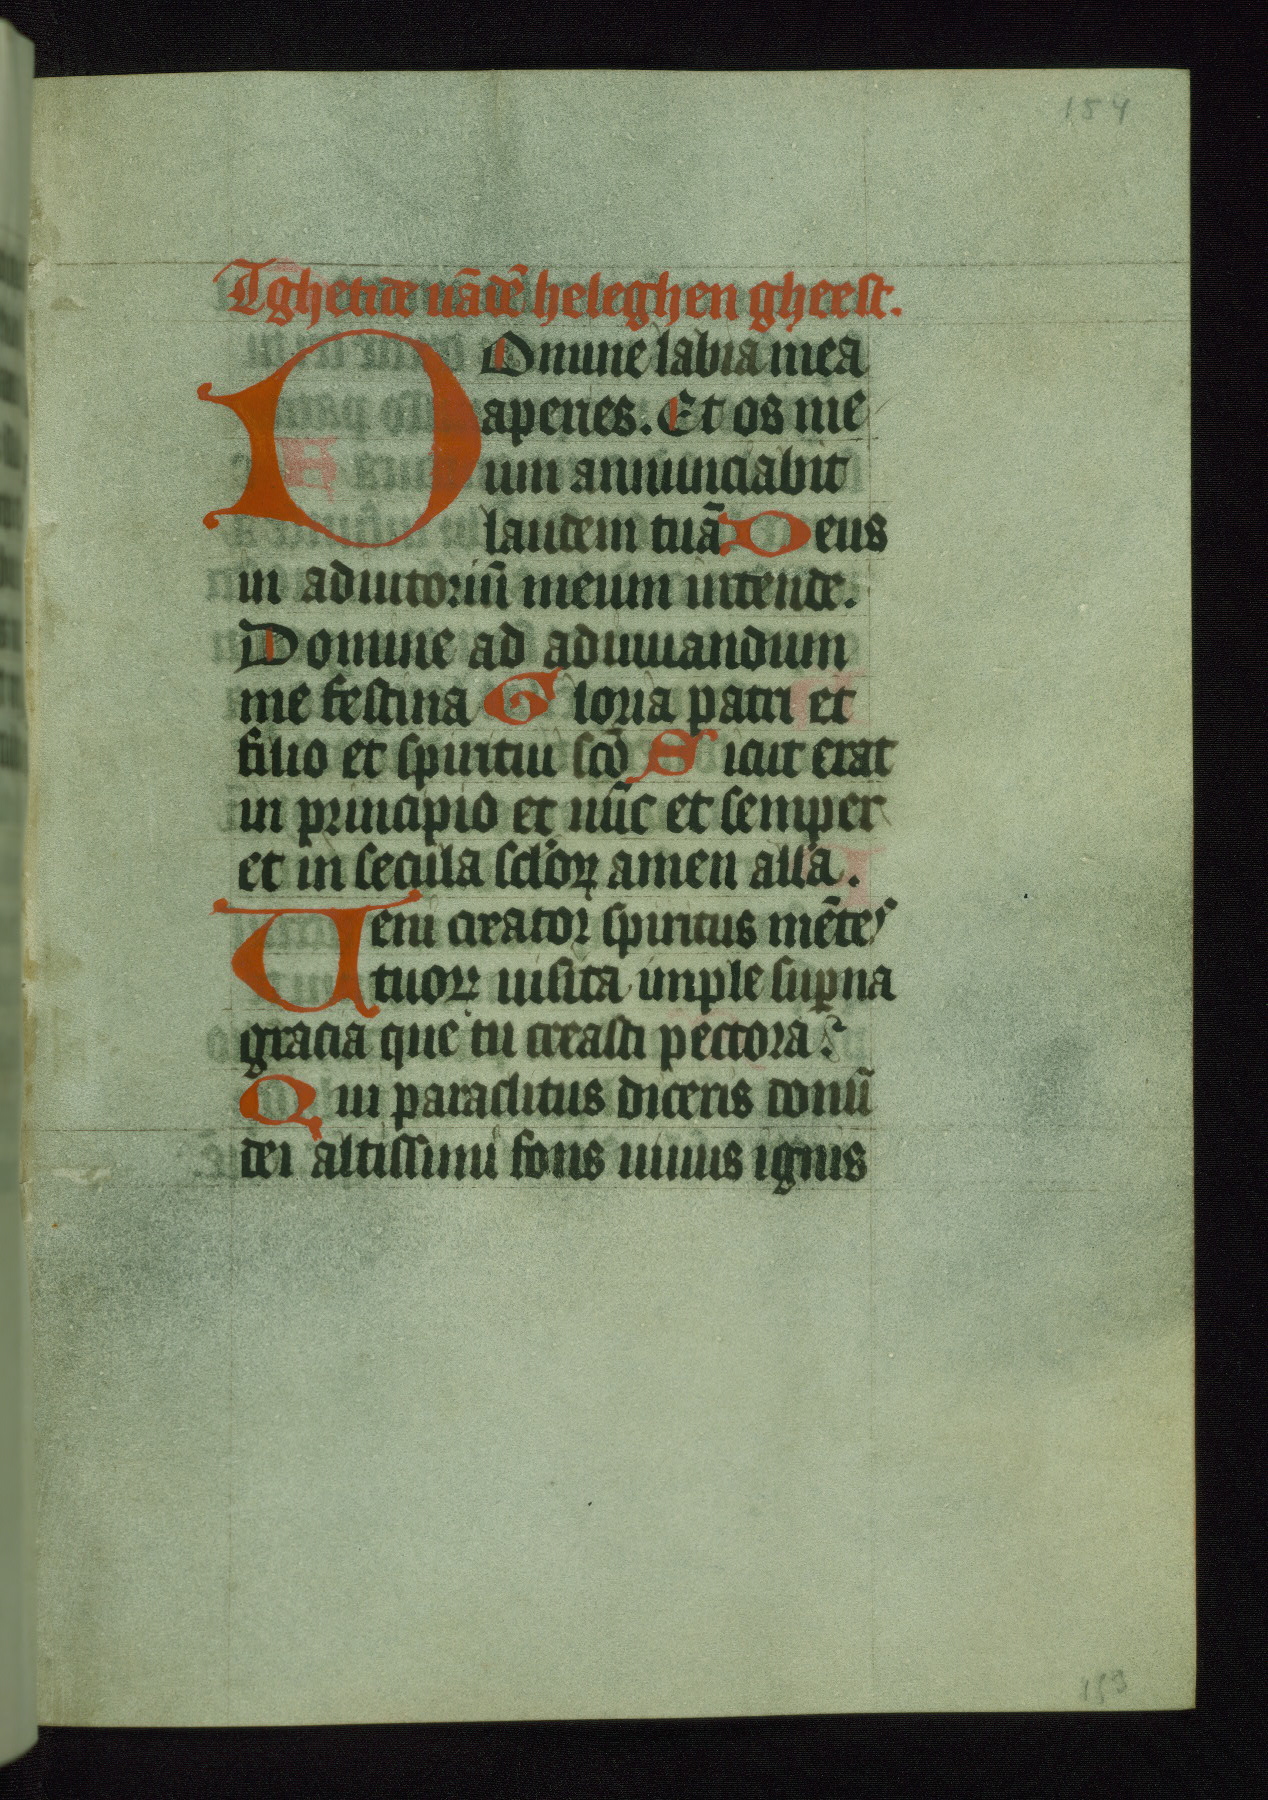 154
Tghetide vā dē heleghen gheest.
DOmine labia mea
aperies. Et os me
um annunciabit
laudem tuā Deus
in adiutoriū meum intende.
Domine ad adiuuandum
me festina Gloria patri et
filio et spiritui scō Sicut erat
in principio et nūc et semper
et in secula sclorꝝ amen alla.
Ueni creator spiritus mētes
tuorꝝ uisita imple suꝑna
gracia que tu creasti pectora.
Qui paraclitus diceris donū
dei altissimi fons uiuus ignis
153